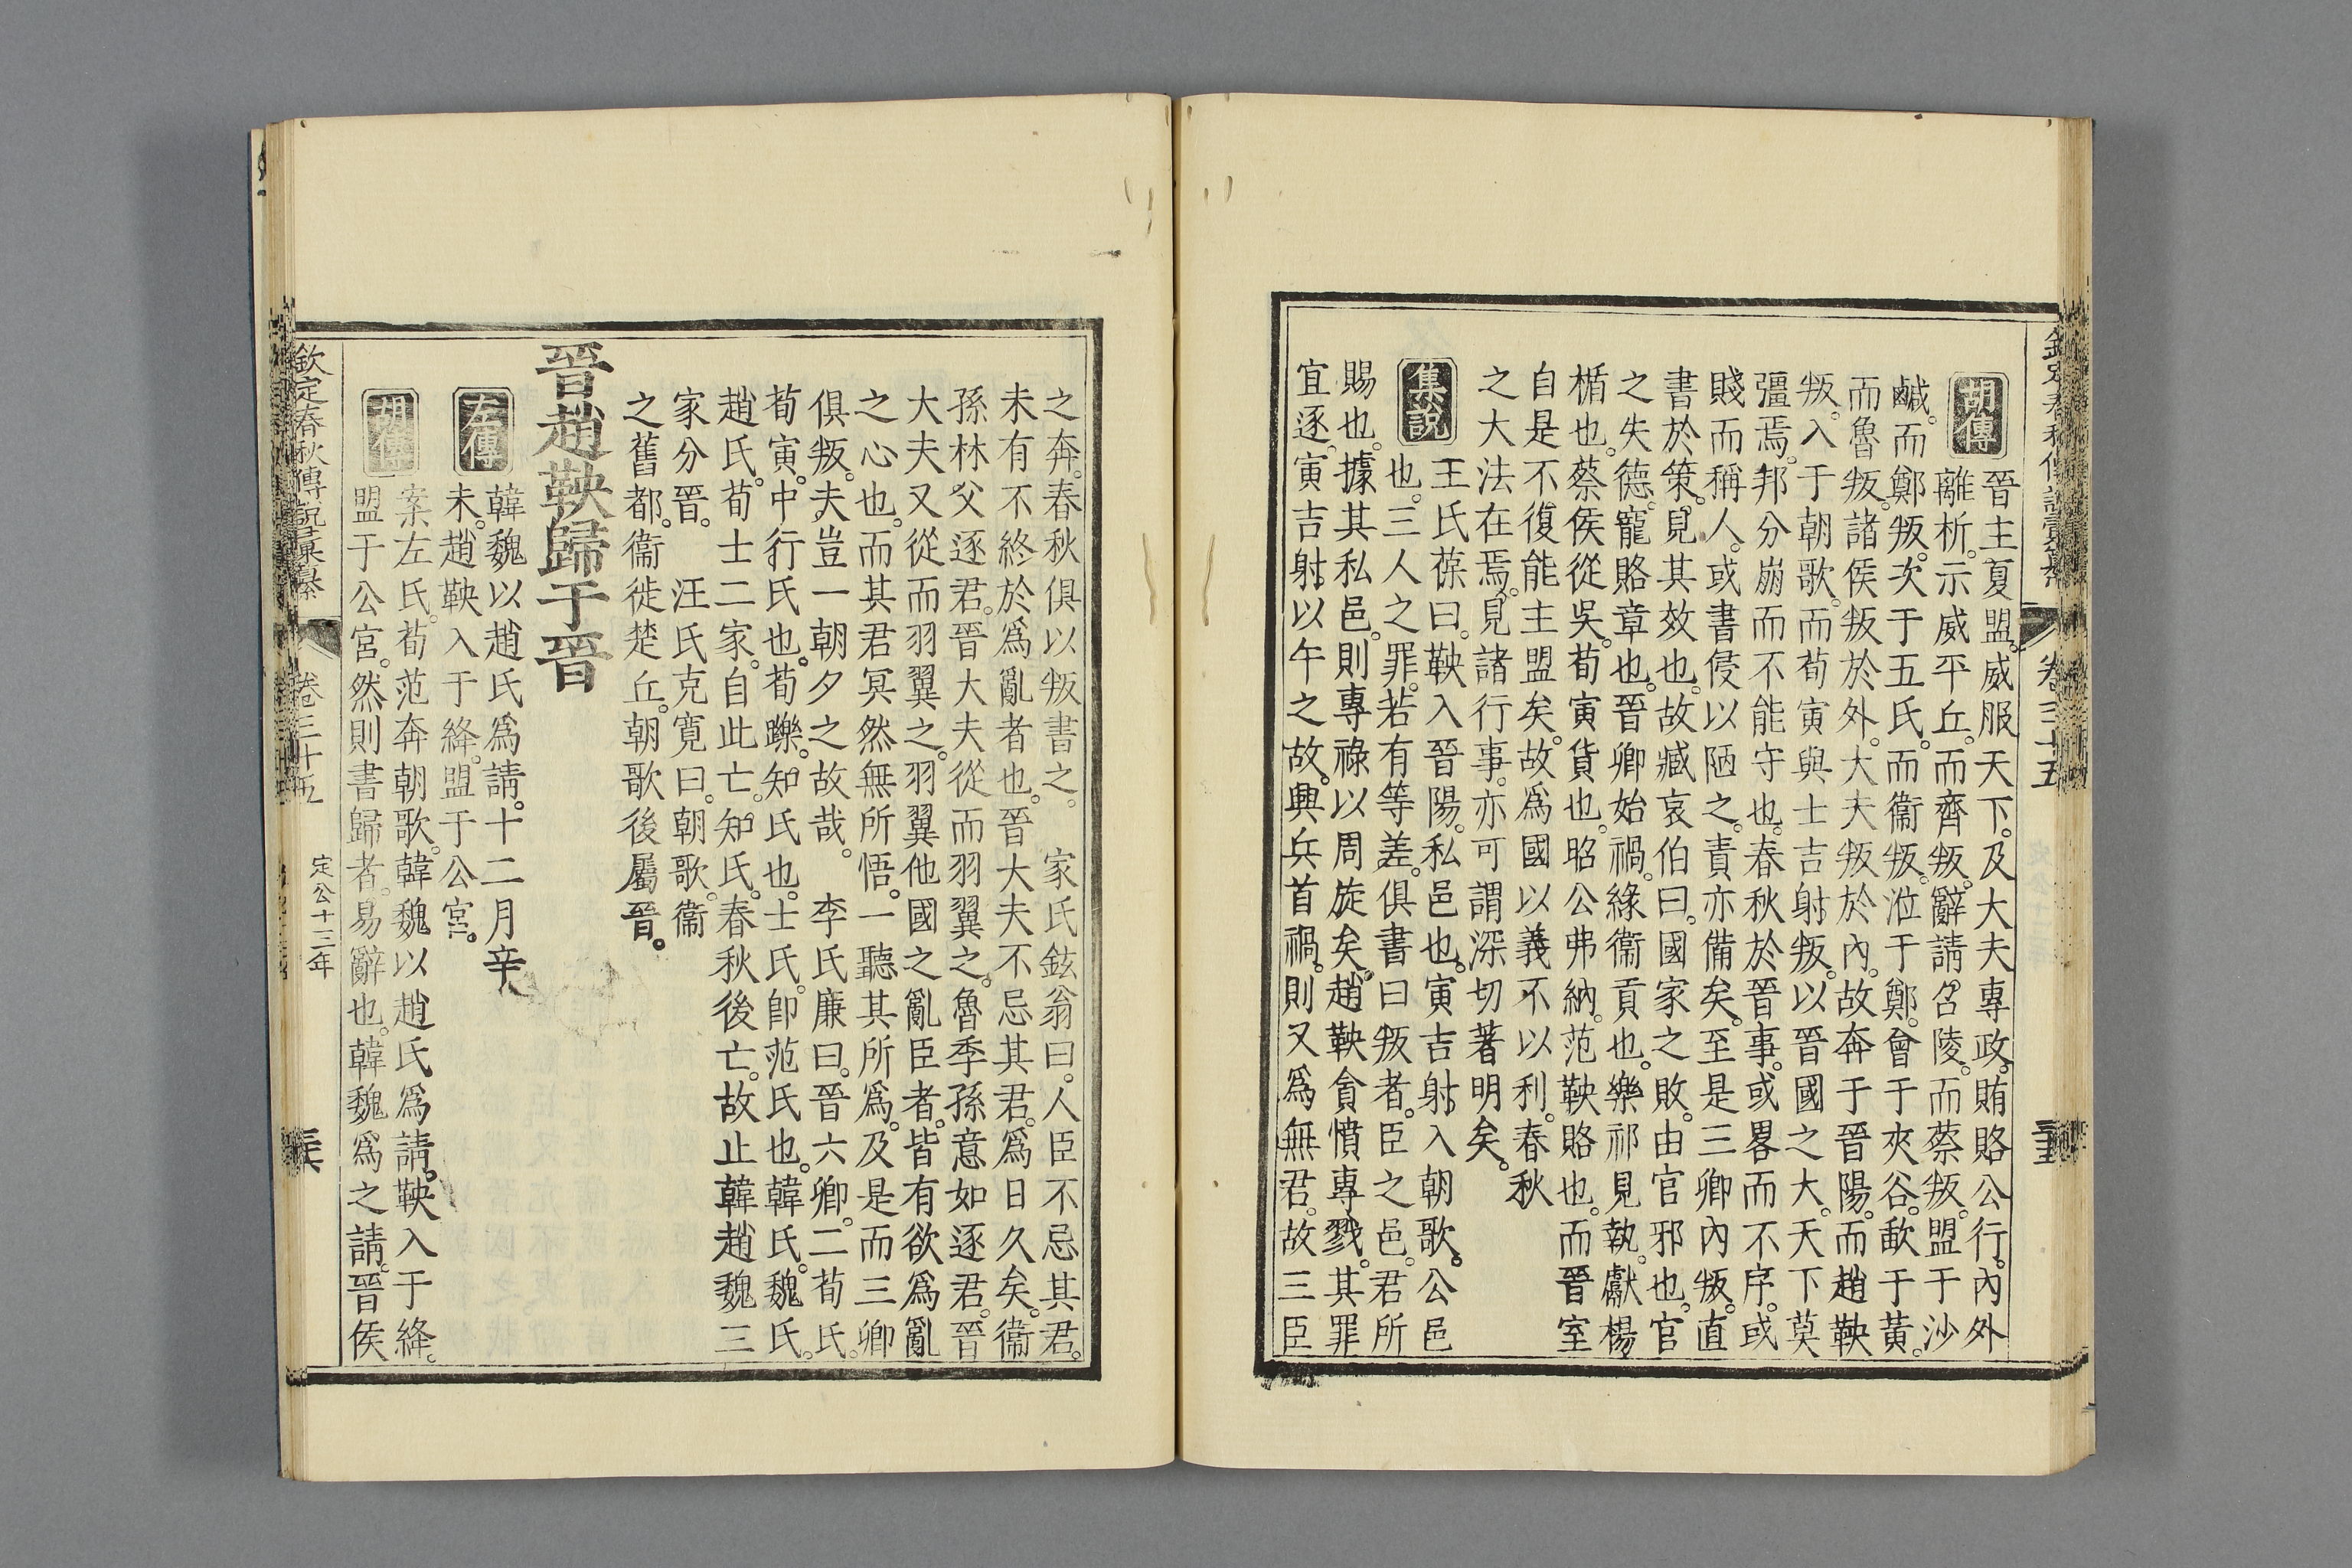 欽定春秋傳說彙纂 卷三十五
胡傳
晉主夏盟。威服天下。及大夫專政。賄賂公行。內外
離析。示威平丘。而齊叛。辭請召陵。而蔡叛。盟于沙
鹹。而鄭叛。次于五氏。而衞叛。涖于鄭。會于夾谷。歃于黃。
而魯叛。諸侯叛於外。大夫叛於內。故奔于晉陽。而趙鞅
叛。入于朝歌。而荀寅與士吉射叛。以晉國之大。天下莫
彊焉。邦分崩而不能守也。春秋於晉事。或畧而不序。或
賤而稱人。或書侵以陋之。責亦備矣。至是三卿內叛。直
書於策。見其效也。故臧哀伯曰。國家之敗。由官邪也。官
之失德。寵賂章也。晉卿始禍。緣衞貢也。樂祁見執。獻楊
楯也。蔡侯從吳。荀寅貨也。昭公弗納。范鞅賂也。而晉室
自是不復能主盟矣。故爲國以義不以利。春秋
之大法在焉。見諸行事。亦可謂深切著明矣。
集說
王氏葆曰。鞅入晉陽。私邑也。寅吉射入朝歌。公邑
也。三人之罪。若有等差。俱書曰叛者。臣之邑。君所
賜也。據其私邑。則專祿以周旋矣。趙鞅貪憤專戮。其罪
宜逐。寅吉射以午之故。興兵首禍。則又爲無君。故三臣
之奔。春秋俱以叛書之。 家氏鉉翁曰。人臣不忌其君。
未有不終於爲亂者也。晉大夫不忌其君。爲日久矣。衞
孫林父逐君。晉大夫從而羽翼之。魯季孫意如逐君。晉
大夫又從而羽翼之。羽翼他國之亂臣者。皆有欲爲亂
之心也。而其君冥然無所悟。一聽其所爲。及是而三卿
俱叛。夫豈一朝夕之故哉。 李氏廉曰。晉六卿。二荀氏。
荀寅。中行氏也。荀躒。知氏也。士氏。卽范氏也。韓氏。魏氏。
趙氏。荀士二家。自此亡。知氏。春秋後亡。故止韓趙魏三
家分晉。 汪氏克寬曰。朝歌。衞
之舊都。衞徙楚丘。朝歌後屬晉。
晉趙鞅歸于晉
左傳
韓魏以趙氏爲請。十二月辛
未。趙鞅入于絳。盟于公宮。
胡傳
案左氏。荀范奔朝歌。韓魏以趙氏爲請。鞅入于絳。
盟于公宮。然則書歸者。易辭也。韓魏爲之請。晉侯
欽定春秋傳說彙纂 卷三十五 定公十三年